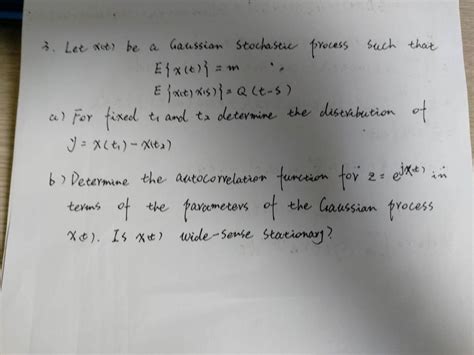 3. Let x(t) be a Gaussian stochastic process such that
E{x(t)} = m
E{x(t)x(s)} = Q(t-s)
a) For fixed t₁ and t₂ determine the distribution of
y = x(t₁) - x(t₂)
b) Determine the autocorrelation function for z = e^{jx(t)} in
terms of the parameters of the Gaussian process
x(t). Is x(t) wide-sense stationary?